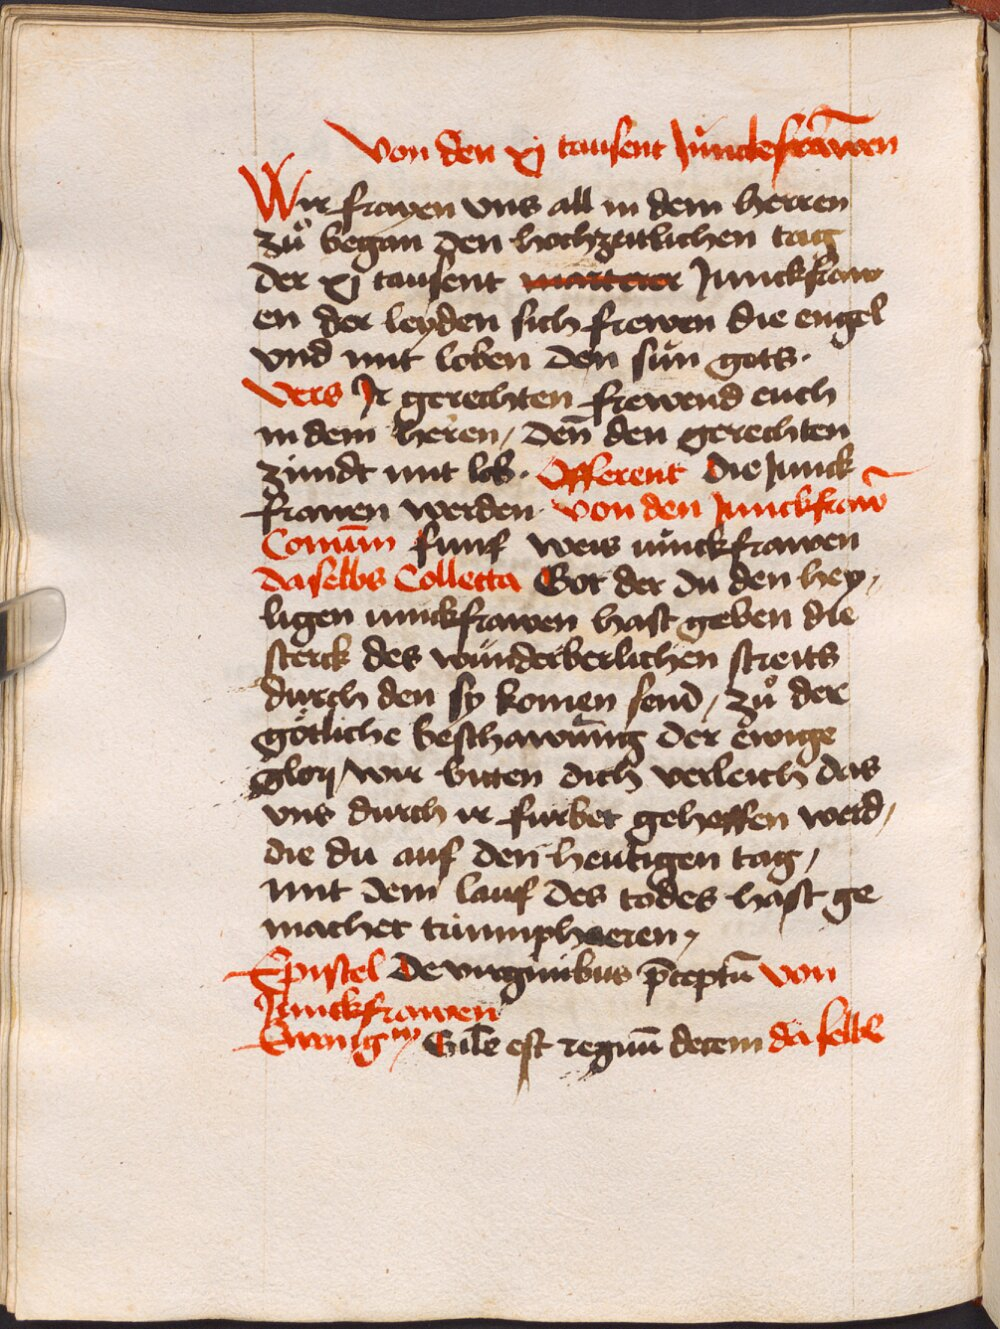 Von den xj tausent Junckfrawen
Wir frayen vns all in dem herren
zů began den hochzeitlichen tag
der xj tausent marterer Junckfraw
en der leyden sich frewen die engel
vnd mit loben den sun gots.
Vers Ir gerechten frewend euch
in dem herren / denn den gerechten
zimdt mit lob. Offerent die Junck
frawen werden. Von den Junckfraw̄
Comūm funf weis iunckfrawen
daselbs Collecta Got der du den hey,
ligen iunckfrawen hast geben die
sterck des wunderberlichen streits
durch den sy komen send / zů der
götliche beschawūng der ewige
glorj / wir biten dich verleich das
vns durch ir furbet geholffen werd /
die du auf den heutigen tag /
mit dem lauf des todes hast ge
machet triumphieren,
Epistel De virginibus p̄ceptū von
Junckfrawen
Ewāgm̄ Sile est regnū decem daselbs